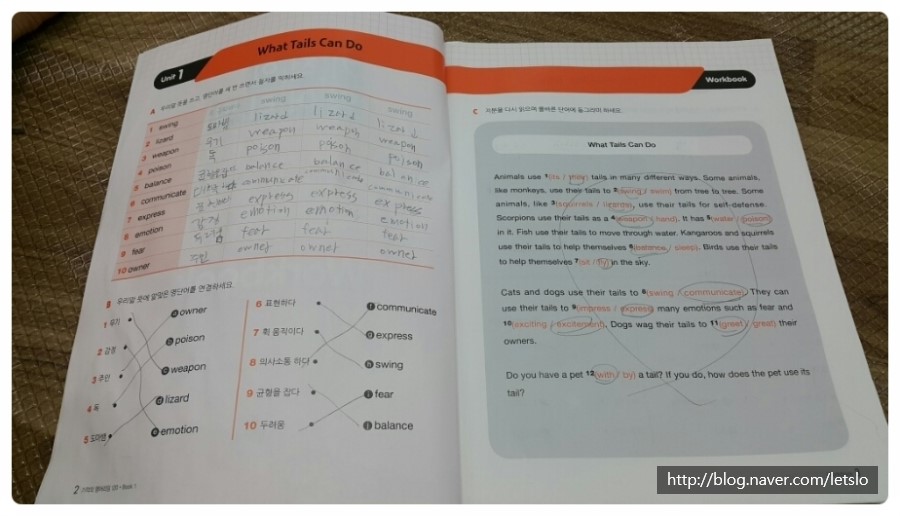 Unit 1
What Tails Can Do
A 우리말 뜻을 쓰고, 영단어를 세 번 쓰면서 철자를 익히세요.
1 swing swing swing swing
2 lizard 도마뱀 lizard lizard lizard
3 weapon 무기 weapon weapon weapon
4 poison 독 poison poison poison
5 balance balance balance balance
6 communicate communicate communicate communicate
7 express express express express
8 emotion 감정 emotion emotion emotion
9 fear 두려움 fear fear fear
10 owner 주인 owner owner owner
B 우리말 뜻에 알맞은 영단어를 연결하세요.
1 무기
2 감정
3 주인
4 독
5 도마뱀
a owner
b poison
c weapon
d lizard
e emotion
6 표현하다
7 휙 움직이다
8 의사소통 하다
9 균형을 잡다
10 두려움
f communicate
g express
h swing
i fear
j balance
2
Book 1
Workbook
C 다시 읽으며 올바른 단어에 동그라미 하세요.
What Tails Can Do
Animals use 1(its / their) tails in many different ways. Some animals,
like monkeys, use their tails to 2(swing / swim) from tree to tree. Some
animals, like 3(squirrels / lizards), use their tails for self-defense.
Scorpions use their tails as a 4(weapon / hand). It has 5(water / poison)
in it. Fish use their tails to move through water. Kangaroos and squirrels
use their tails to help themselves 6(balance / sleep). Birds use their tails
to help themselves 7(sit / fly) in the sky.
Cats and dogs use their tails to 8(swing / communicate). They can
use their tails to 9(impress / express) many emotions such as fear and
10(exciting / excitement). Dogs wag their tails to 11(greet / great) their
owners.
Do you have a pet 12(with / by) a tail? If you do, how does the pet use its
tail?
http://blog.naver.com/letslo